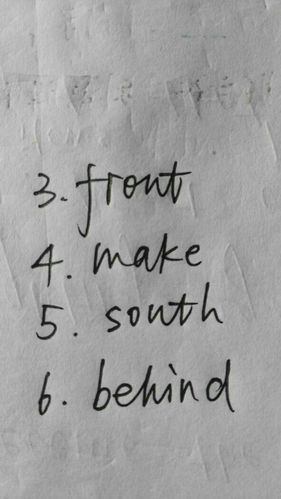 3. front
4. make
5. south
6. behind